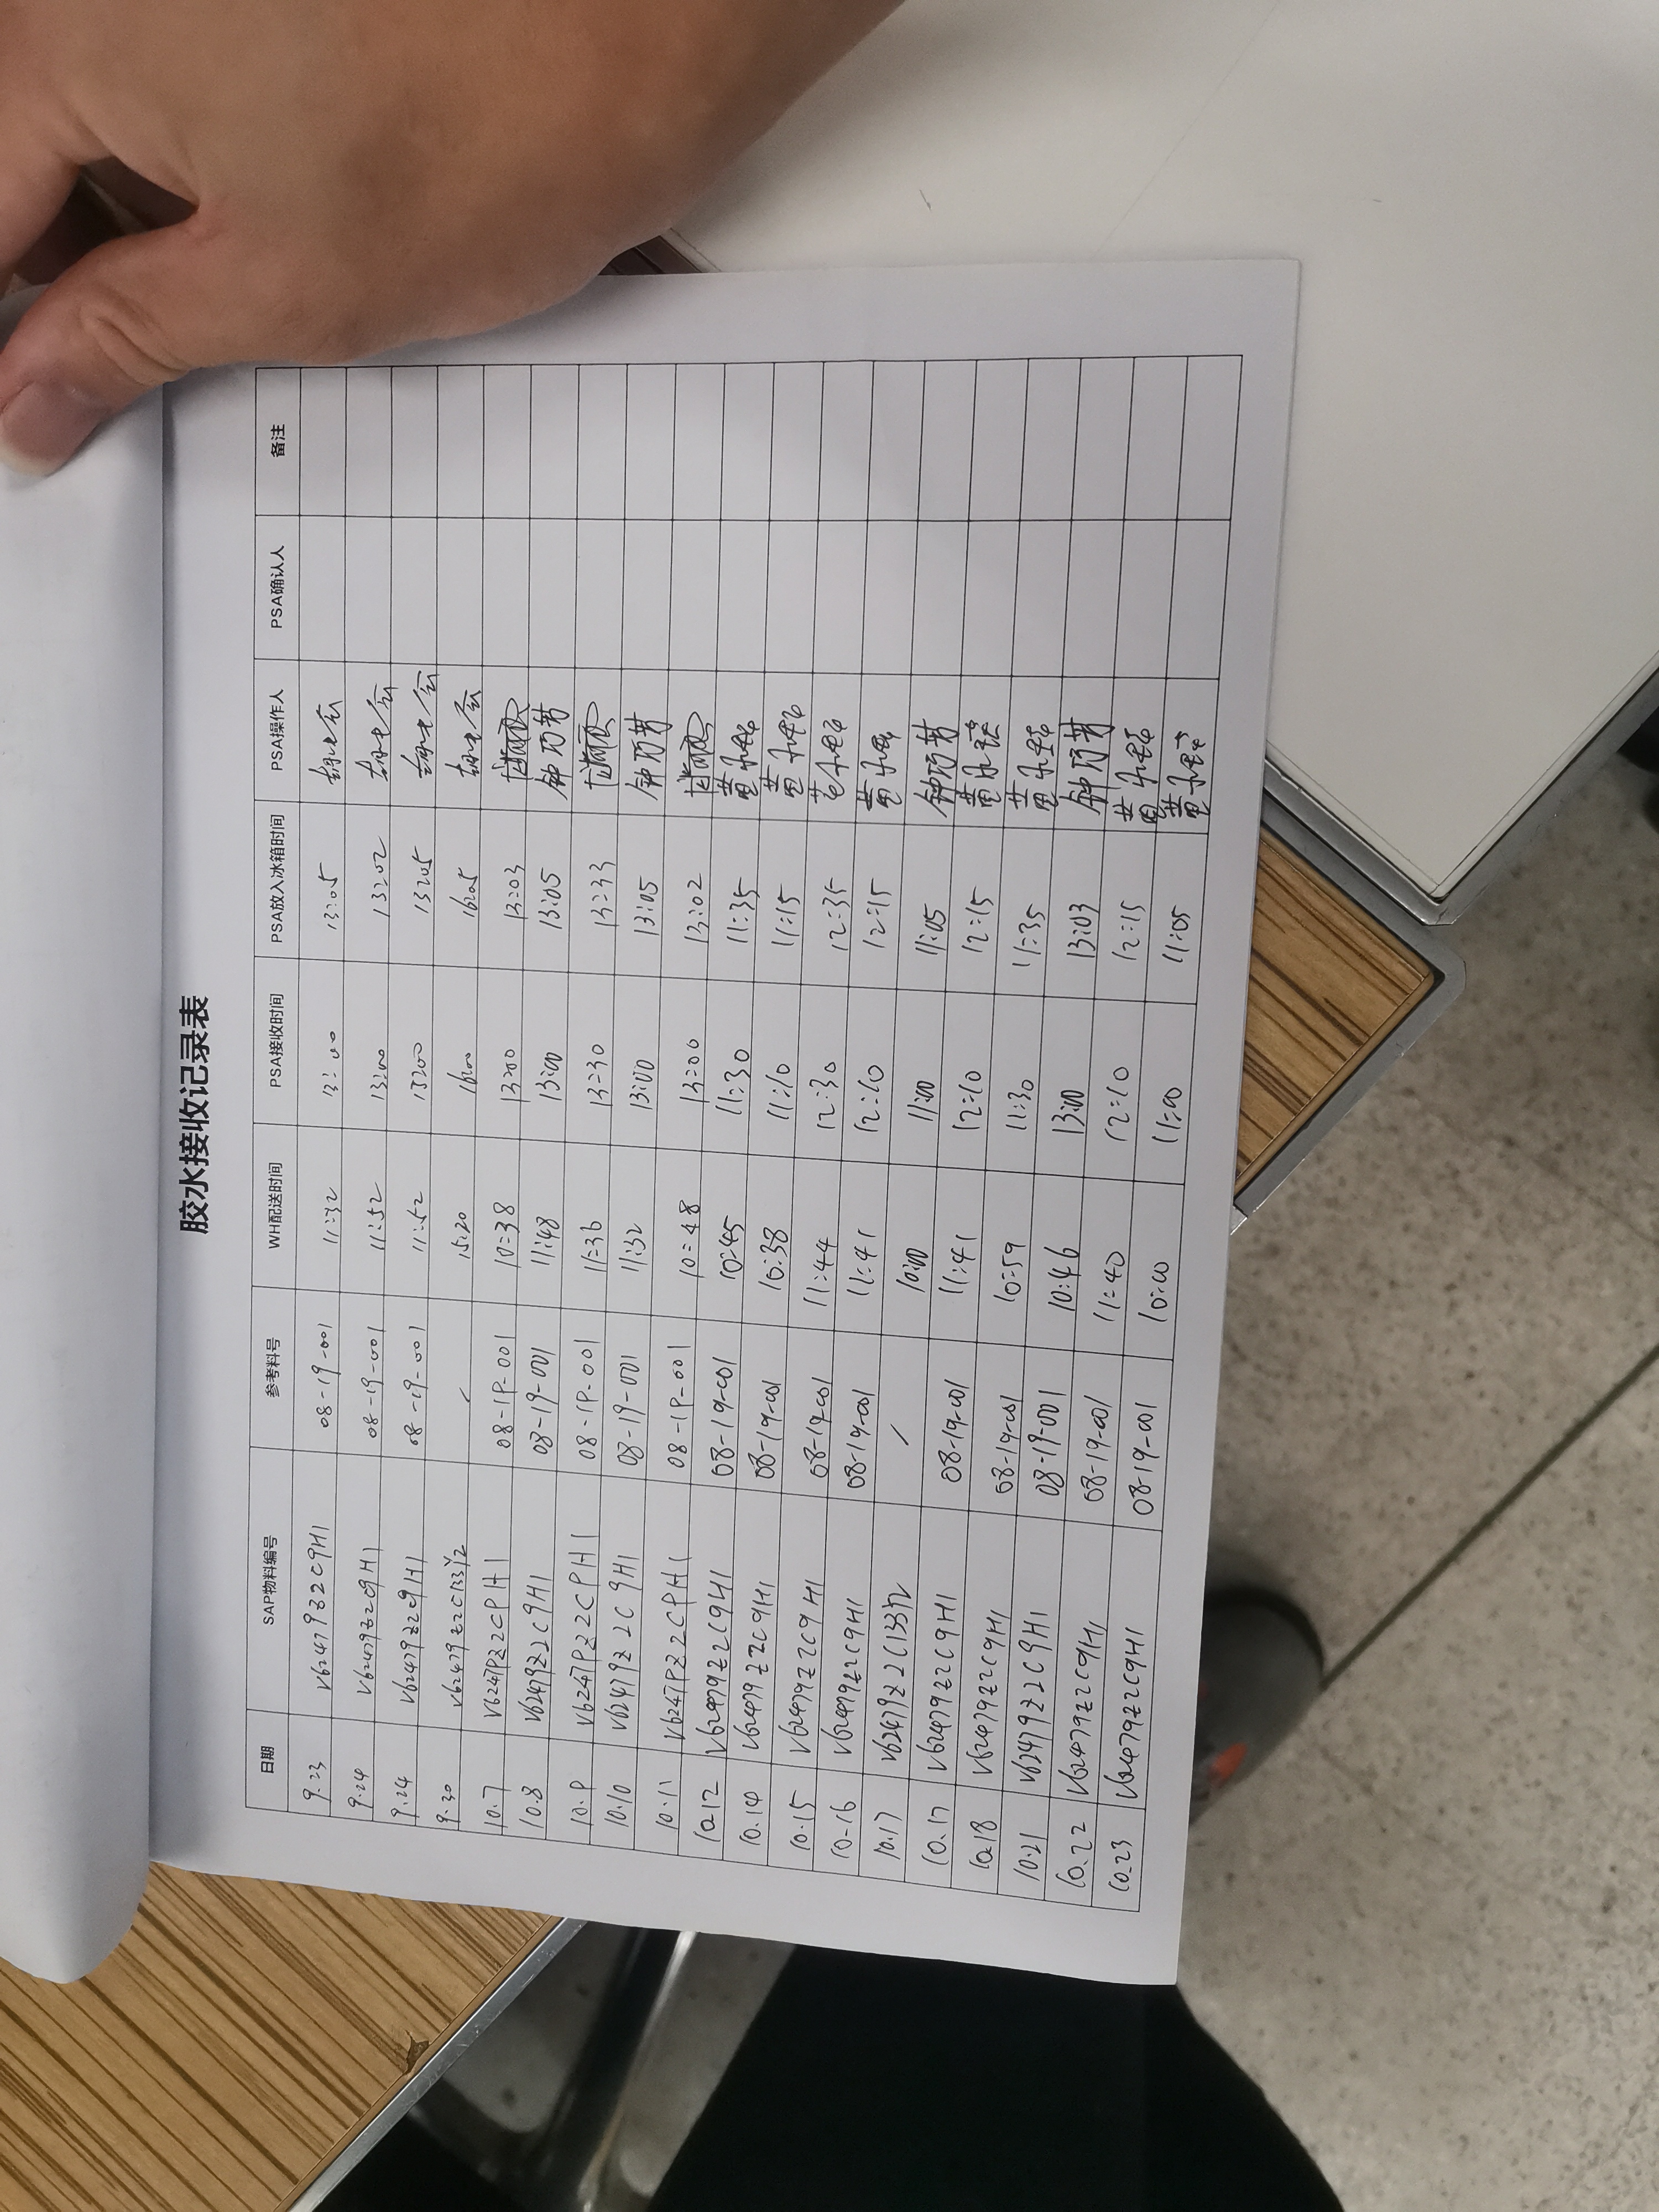 胶水接收记录表
日期 SAP物料编号 参考料号 WH配送时间 PSA接收时间 PSA放入冰箱时间 PSA操作人 PSA确认人 备注
9.23 V62479Z2C9H1 08-19-001 11:32 13:00 13:05
9.24 V62479Z2C9H1 08-19-001 11:52 13:00 13:02
9.24 V62479Z2C9H1 08-19-001 11:52 13:00 13:05
9.30 V62479Z2C133Y2 / 15:20 16:00 16:05
10.7 V62479Z2C9H1 08-19-001 10:38 13:00 13:03
10.8 V62479Z2C9H1 08-19-001 11:48 13:00 13:05 钟巧芳
10.9 V62479Z2C9H1 08-19-001 11:36 13:30 13:33
10.10 V62479Z2C9H1 08-19-001 11:32 13:00 13:05 钟巧芳
10.11 V62479Z2C9H1 08-19-001 10:48 13:00 13:02
10.12 V62479Z2C9H1 08-19-001 10:45 11:30 11:35
10.14 V62479Z2C9H1 08-19-001 10:38 11:10 11:15
10.15 V62479Z2C9H1 08-19-001 11:44 12:30 12:35
10.16 V62479Z2C9H1 08-19-001 11:41 12:10 12:15
10.17 V62479Z2C133Y2 / 10:00 11:00 11:05 钟巧芳
10.17 V62479Z2C9H1 08-19-001 11:41 12:10 12:15
10.18 V62479Z2C9H1 08-19-001 10:59 11:30 11:35
10.21 V62479Z2C9H1 08-19-001 10:46 13:00 13:03 钟巧芳
10.22 V62479Z2C9H1 08-19-001 11:40 12:10 12:15
10.23 V62479Z2C9H1 08-19-001 10:00 11:00 11:05